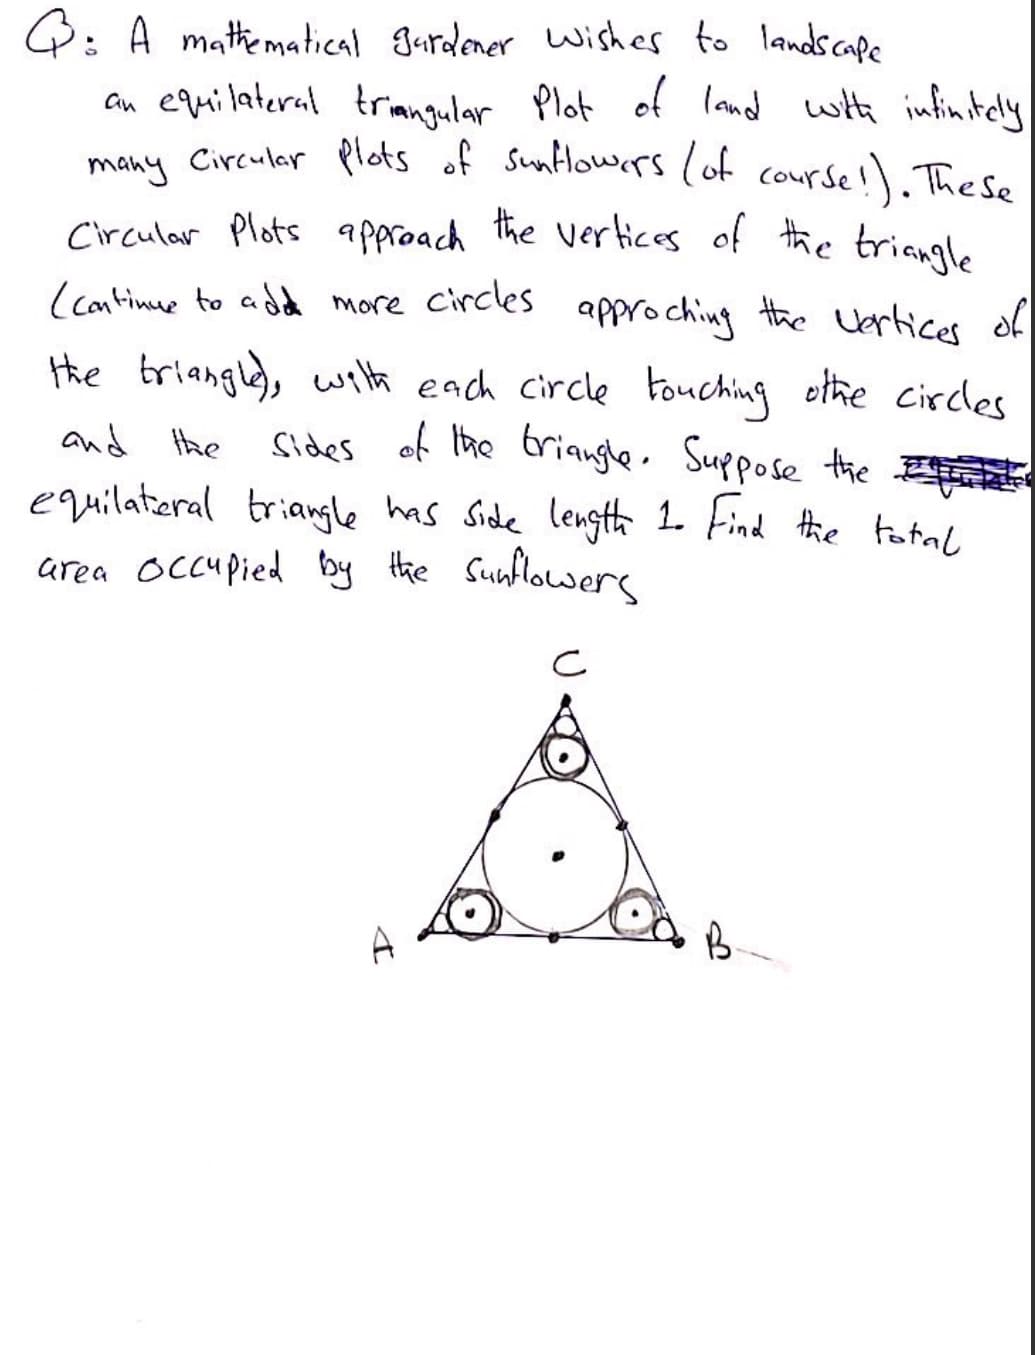 Q: A mathematical gardener wishes to landscape
an equilateral triangular Plot of land with infinitely
many Circular Plots of sunflowers (of course!). These
Circular Plots approach the vertices of the triangle
(continue to add more circles approching the vertices of
the triangle), with each circle touching othe circles
and the sides of the triangle. Suppose the
equilateral triangle has side length 1. Find the total
area occupied by the sunflowers
C
A
B